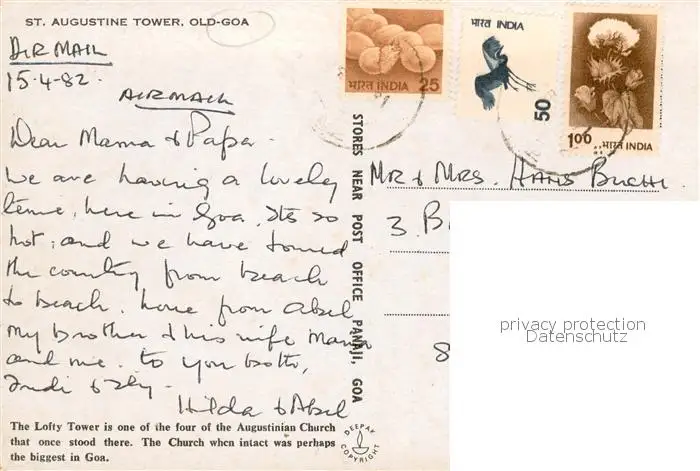 ST. AUGUSTINE TOWER, OLD-GOA
AIR MAIL
15-4-82.
AIRMAIL
Dear Mama & Papa.
We are having a lovely
time, here in Goa. Its so
hot; and we have toured
the country from beach
to beach. love from Abel
my brother & his wife Maria
and me. to you both,
& Elly.
Hilda & Abel
The Lofty Tower is one of the four of the Augustinian Church
that once stood there. The Church when intact was perhaps
the biggest in Goa.
STORES NEAR POST OFFICE PANAJI, GOA
DEEPAK COPYRIGHT
भारत INDIA 25
भारत INDIA
50
1.00 भारत INDIA
MR & MRS. HANS BUCHI
3. B
8
privacy protection
Datenschutz